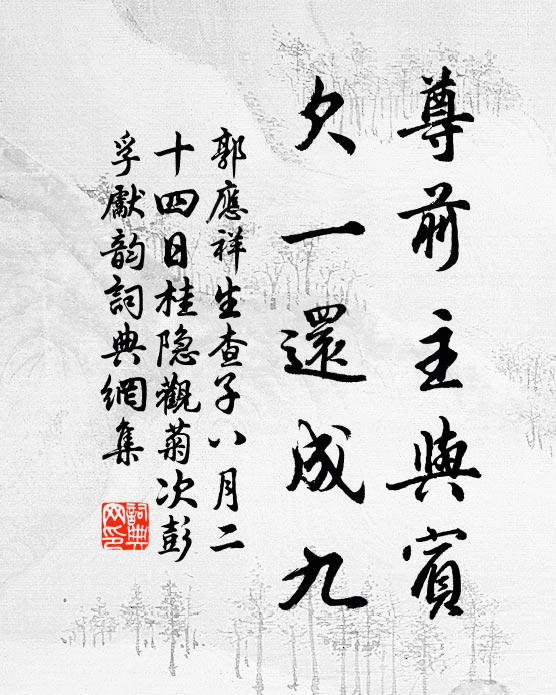 尊前主與賓
欠一還成九
郭應祥生查子八月二
十四日桂隐觀菊次彭
孚獻韵詞典網集
詞典
网印